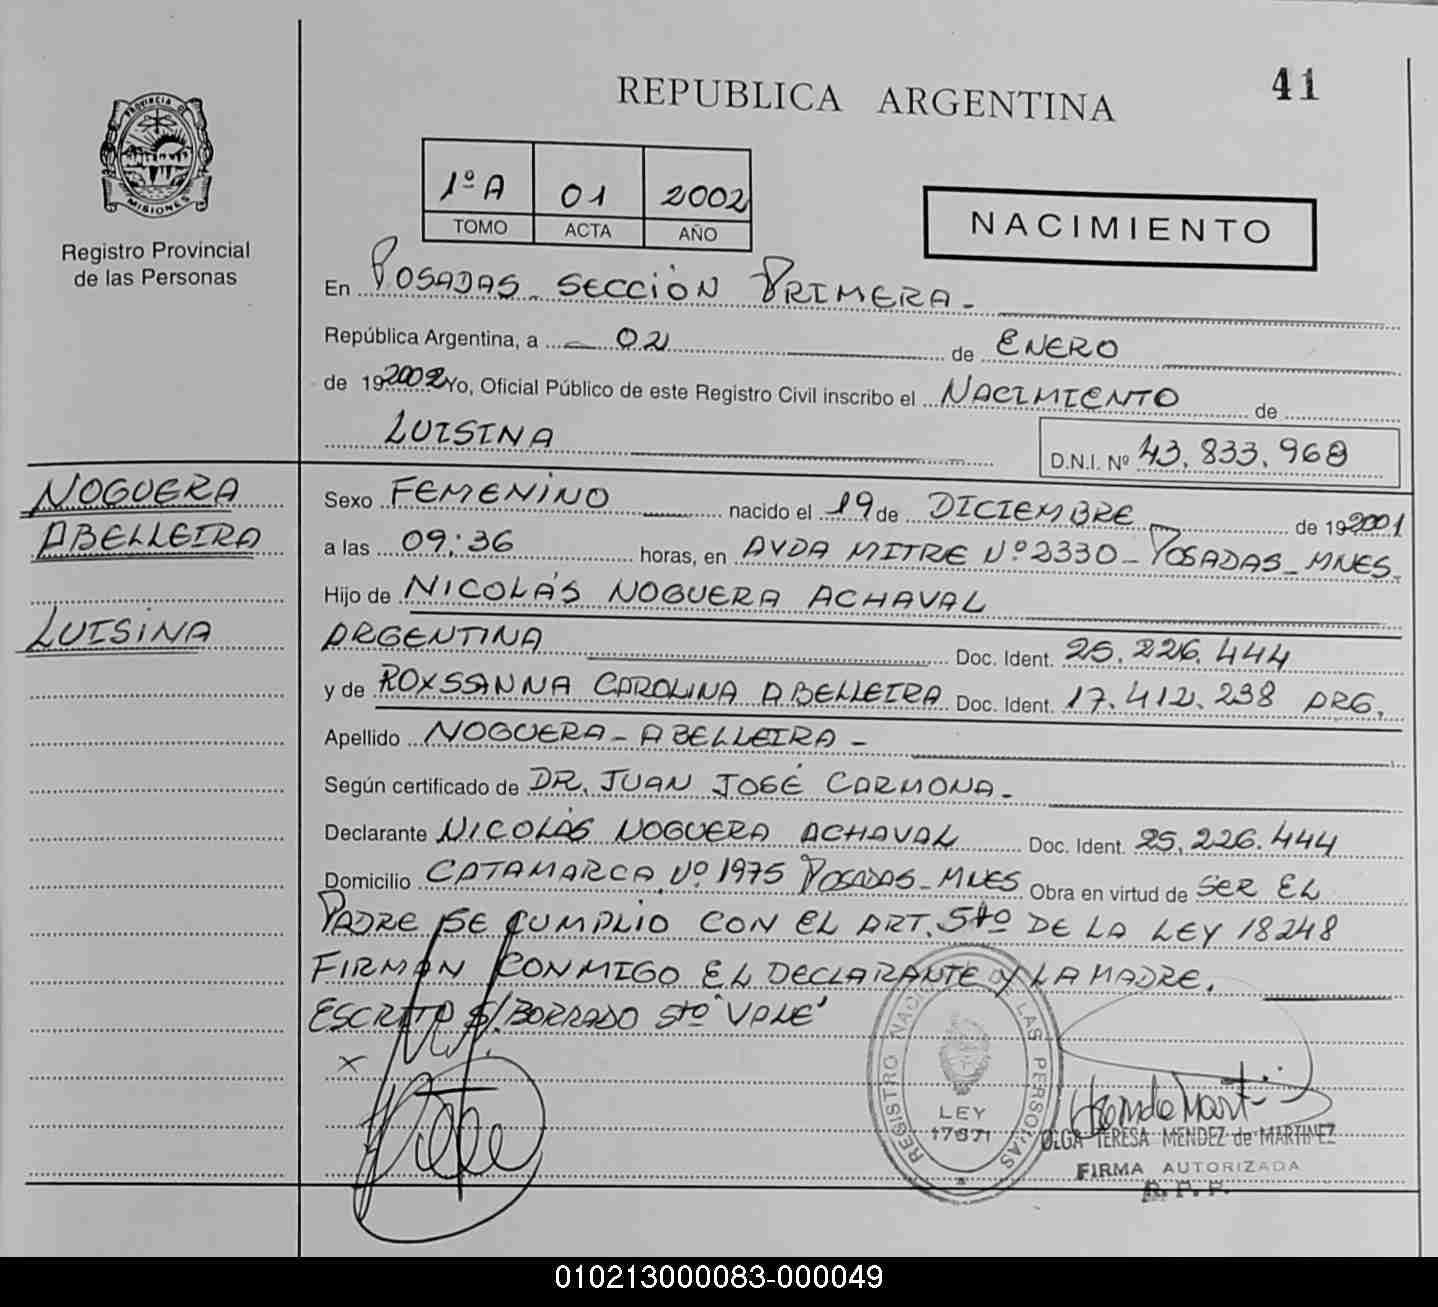 41
REPUBLICA ARGENTINA
PROVINCIA DE
MISIONES
Registro Provincial
de las Personas
1º A 01 2002
TOMO ACTA AÑO
NACIMIENTO
En POSADAS - SECCIÓN PRIMERA -
República Argentina, a 02 de ENERO
de 192002 Yo, Oficial Público de este Registro Civil inscribo el NACIMIENTO de
LUISINA D.N.I. Nº 43.833.968
NOGUERA
ABELLEIRA
LUISINA
Sexo FEMENINO nacido el 19 de DICIEMBRE de 192001
a las 09:36 horas, en AVDA MITRE Nº 2330 - POSADAS - MNES.
Hijo de NICOLÁS NOGUERA ACHAVAL
ARGENTINA Doc. Ident. 25.226.444
y de ROXSANNA CAROLINA ABELLEIRA Doc. Ident. 17.412.238 ARG.
Apellido NOGUERA - ABELLEIRA -
Según certificado de DR. JUAN JOSÉ CARMONA -
Declarante NICOLÁS NOGUERA ACHAVAL Doc. Ident. 25.226.444
Domicilio CATAMARCA Nº 1975 POSADAS - MNES Obra en virtud de SER EL
PADRE SE CUMPLIO CON EL ART. 5to DE LA LEY 18248
FIRMAN CONMIGO EL DECLARANTE Y LA MADRE.
ESCRITO S/BORRADO 5to "VALE"
X
REGISTRO NACIONAL DE LAS PERSONAS
LEY
17671
OLGA TERESA MENDEZ de MARTINEZ
FIRMA AUTORIZADA
R. P. P.
010213000083-000049